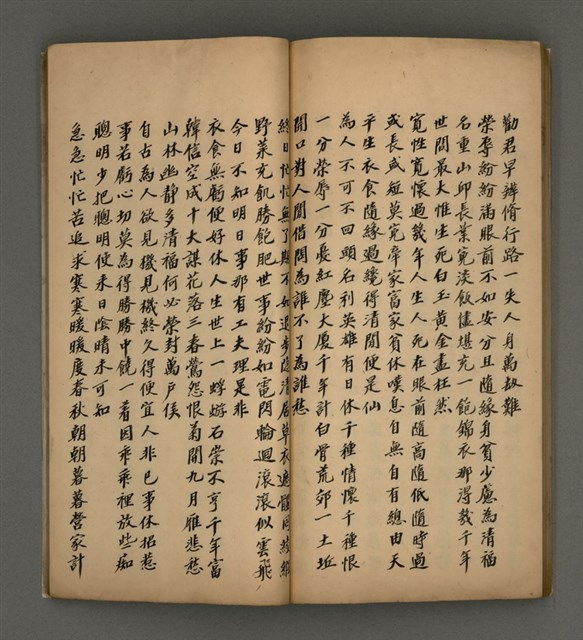 勸君早辦脩行路一失人身萬劫難
榮辱紛紛滿眼前不如安分且隨緣身貧少慮為清福
名重山邱長業冤淡飯儘堪充一飽錦衣那得幾千年
世間最大惟生死白玉黃金盡枉然
寬性寬懷過幾年人生人死在眼前隨高隨低隨時過
或長或短莫冤牽家富家貧休嘆息自無自有總由天
平生衣食隨緣過纔得清閒便是仙
為人不可不回頭名利英雄有日休千種情懷千種恨
一分榮辱一分憂紅塵大廈千年計白骨荒郊一土坵
開口對人間借問為誰不了為誰愁
終日忙忙無了期不如退步隱清居草衣遮體同綾綿
野菜充飢勝飽肥世事紛紛如電閃輪迴滾滾似雲飛
今日不知明日事那有工夫理是非
衣食無虧便好休人生世上一蜉遊石崇不亨千年富
韓信空成十大謀花落三春鶯怨恨菊開九月雁悲愁
山林幽靜多清福何必榮封萬戶侯
自古為人欲見機見機終久得便宜人非已事休招惹
事若虧心切莫為得勝勝中饒一着因乖乖裡放些痴
聰明少把聰明使未日陰晴未可知
急急忙忙苦追求寒寒暖暖度春秋朝朝暮暮營家計